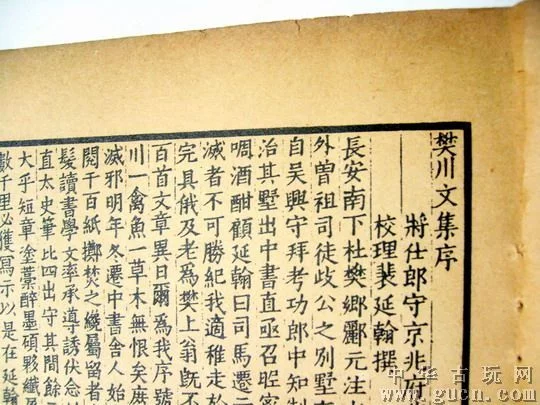 樊川文集序
將仕郎守京兆府
校理裴延翰撰
長安南下杜樊鄉酈元注
外曾祖司徒岐公之别墅
自吳興守拜考功郎中知制
治其墅出中書直亟召昵密
啁酒酣顧延翰曰司馬遷云
滅者不可勝紀我適稚走於
完具俄及老爲樊上翁旣不
百首文章異日爾爲我序號
川一禽魚一草木無恨矣庶
滅邪明年冬遷中書舍人始
閱千百紙擲焚之纔屬留者
髮讀書學文率承導誘伏念
直太史筆比四出守其間餘
大乎短章塗藁醉墨碩夥纖
數千里必獲寫示以是在延翰
中华古玩网
www.gucn.com